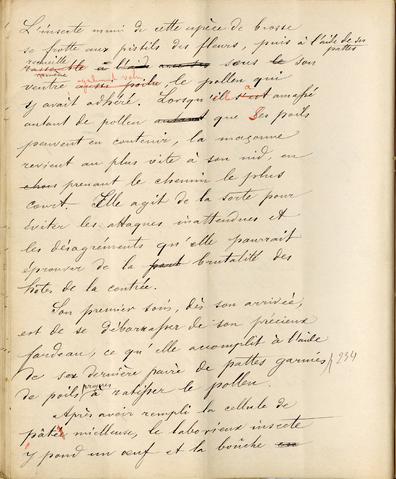 L'insecte muni de cette espèce de brosse
se frotte aux pistils des fleurs, puis à l'aide de ses
pattes
recueille
ramène
rassemble sous son
ventre le pollen qui
y avait adhéré. Lorsqu'elle a amassé
autant de pollen autant que ses poils
peuvent en contenir, la maçonne
revient au plus vite à son nid, en
prenant le chemin le plus
court. Elle agit de la sorte pour
éviter les attaques inattendues et
les désagréments qu'elle pourrait
éprouver de la part brutalité des
hôtes de la contrée.
Son premier soin, dès son arrivée,
est de se débarrasser de son précieux
fardeau, ce qu'elle accomplit à l'aide
de sa dernière paire de pattes garnies 234
de poils propres à ratisser le pollen.
Après avoir rempli la cellule de
pâtée mielleuse, le laborieux insecte
y pond un œuf et la bouche